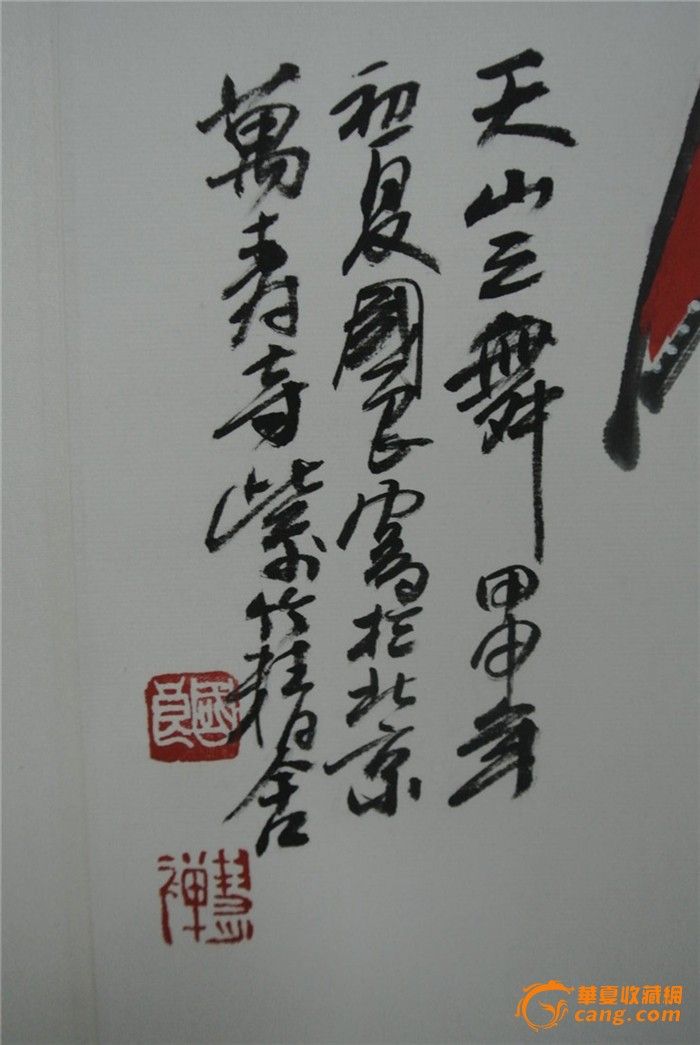 天山之舞 甲申年
初夏國良寫於北京
萬壽寺紫竹精舍
國良
慧禪
華夏收藏網
cang.com